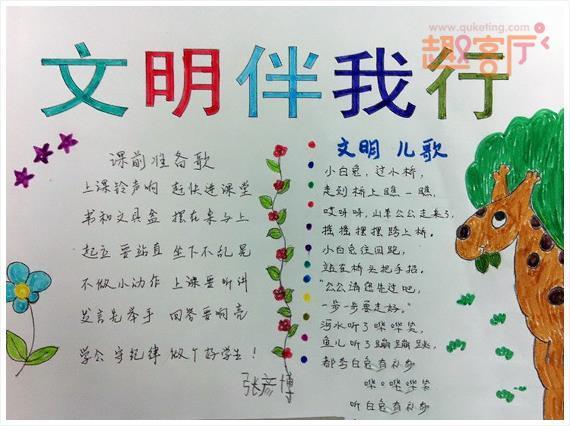 www.quketing.com
趣客厅
文明伴我行
课前准备歌
上课铃声响 赶快进课堂
书和文具盒 摆在桌与上
起立要站直 坐下不乱晃
不做小动作 上课要听讲
发言先举手 回答要响亮
学会守纪律 做个好学生!
张彦博
文明 儿歌
小白兔,过小桥,
走到桥上瞧一瞧,
哎呀呀,山羊公公走来了,
摇摇摆摆跨上桥。
小白兔往回跑,
站在桥头把手招。
"公公请您先过吧,
一步一步要走好。"
河水听了哗哗笑,
鱼儿听了蹦蹦跳,
都夸白兔有礼貌
哗哗哗哗笑
听白兔有礼貌